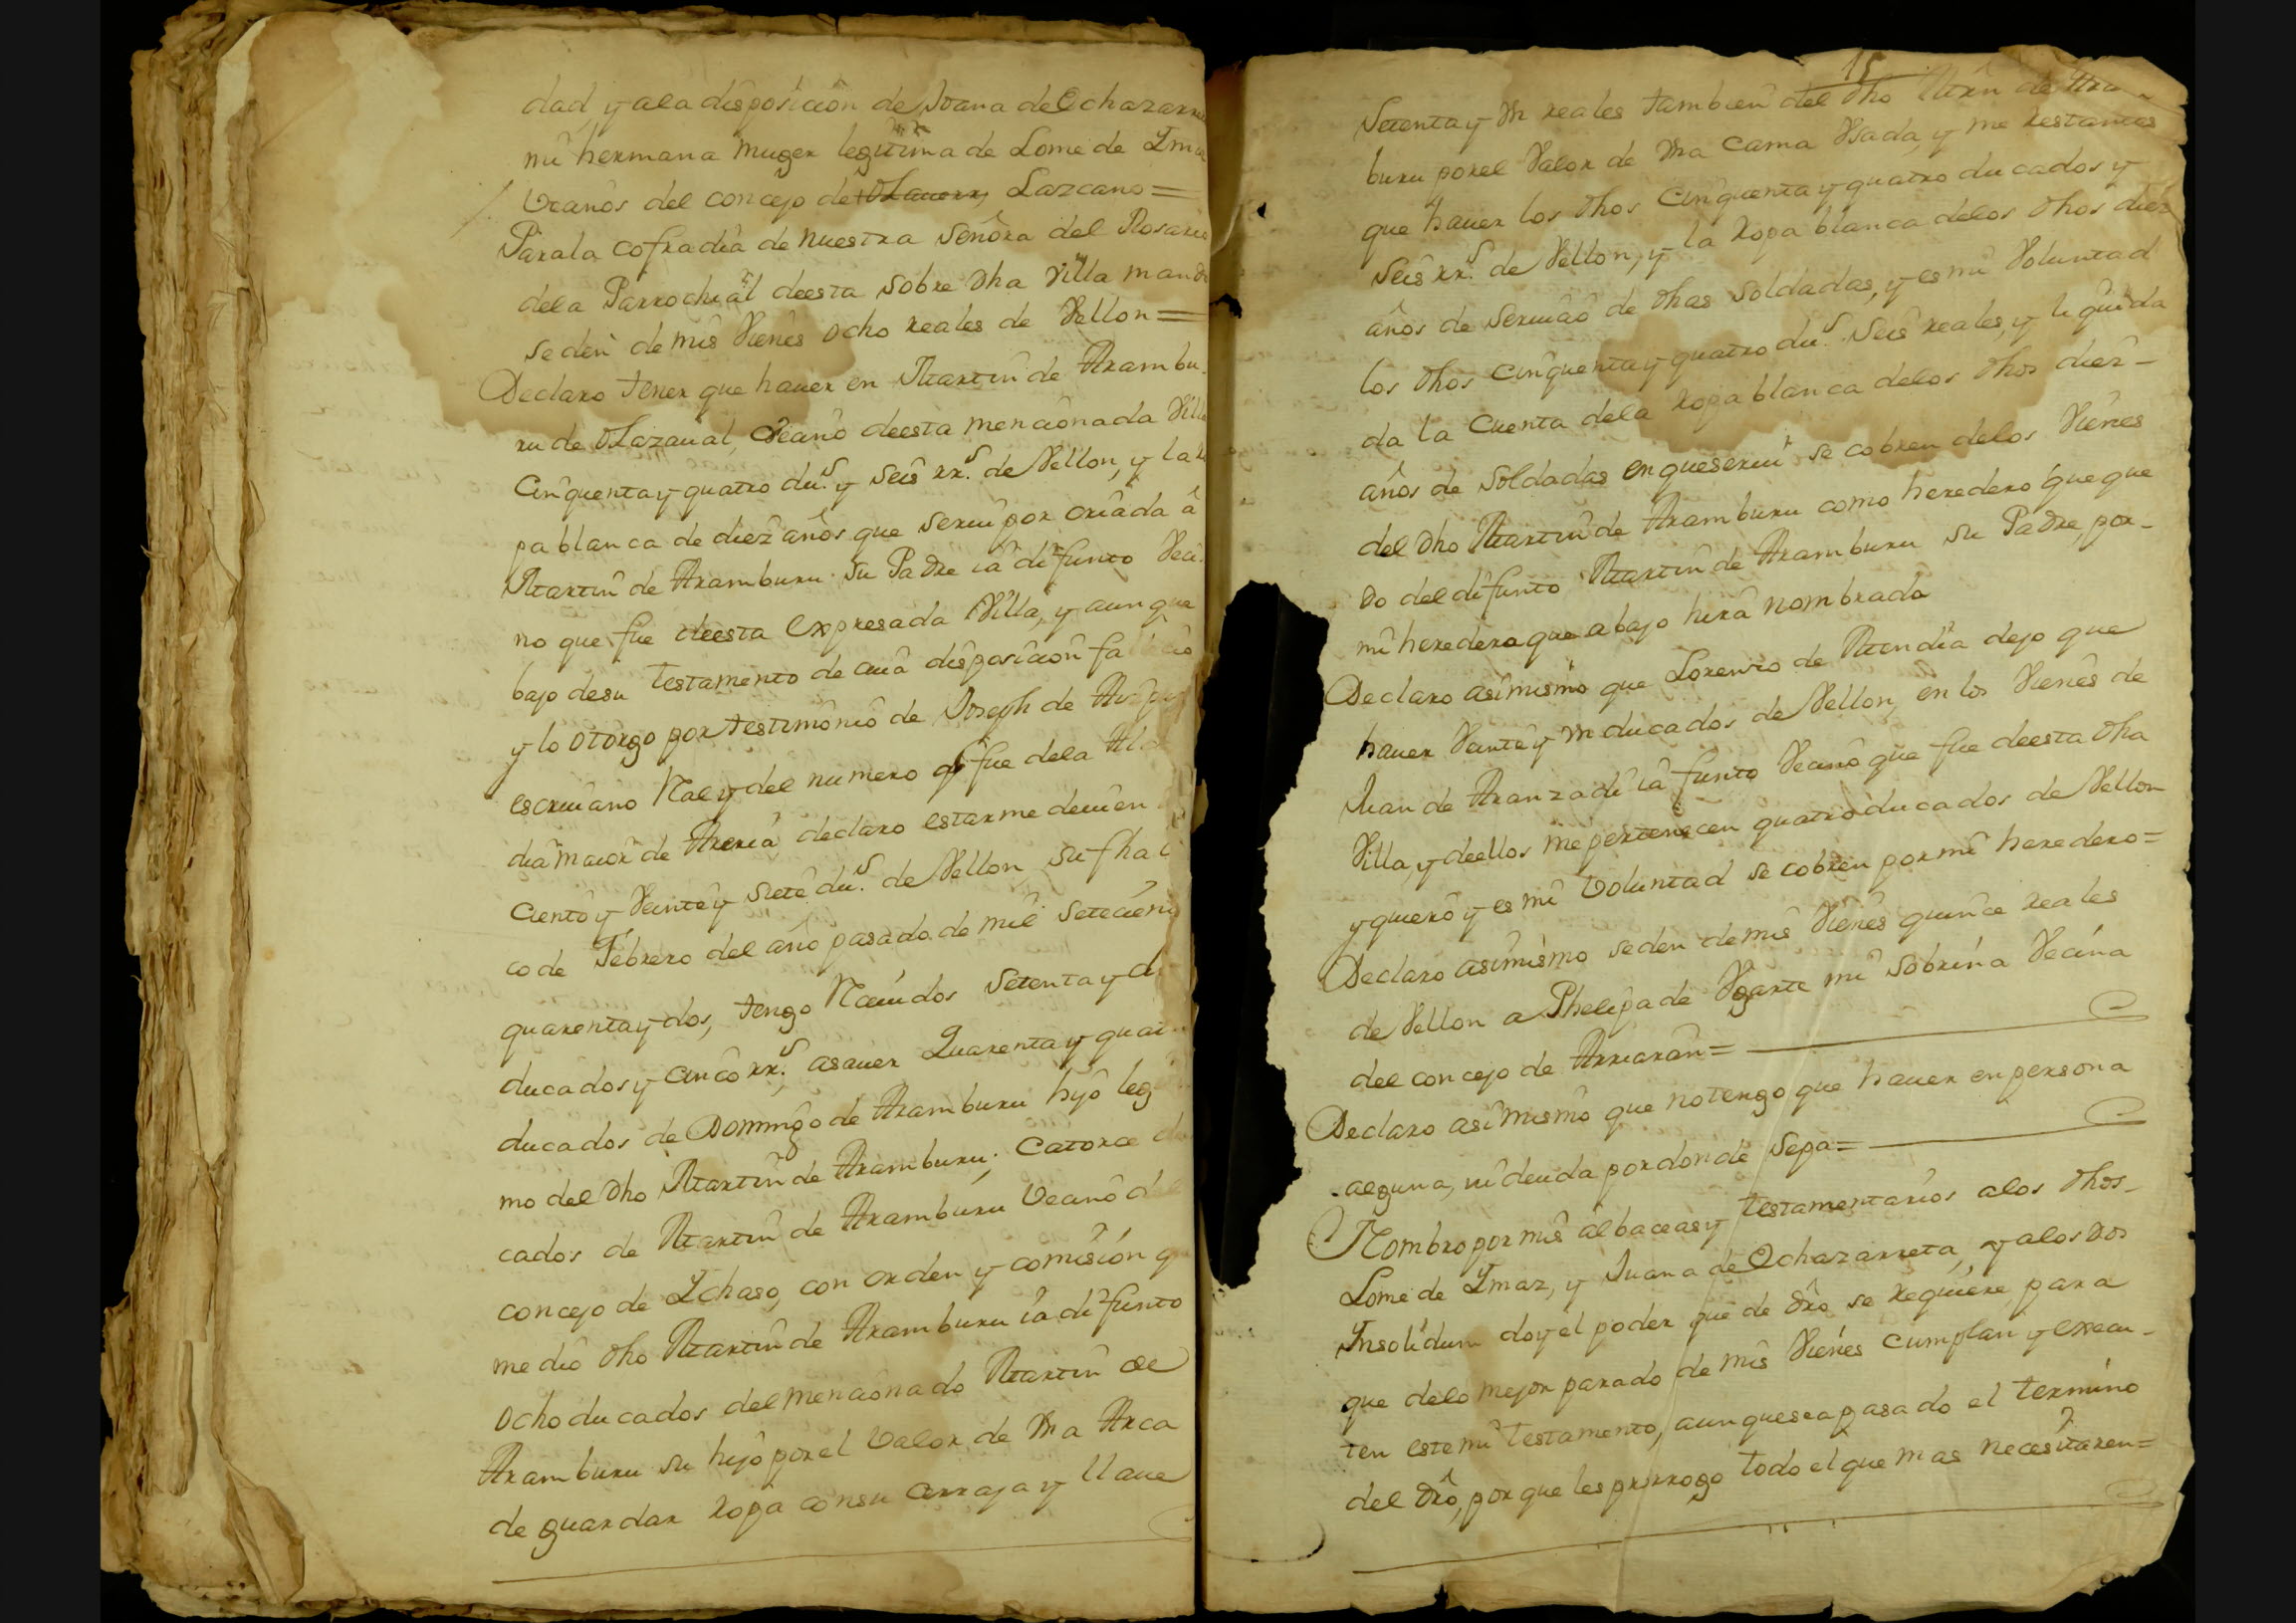 dad, y ala disposicion de Joana de Echazarre
mi hermana muger legitima de Lome de Ymaz
vecinos del concejo de Lazcano =
Para la cofradia de nuestra señora del Rosario
dela Parrochial deesta sobre dha villa mando
se den de mis Vienes ocho reales de Vellon =
Declaro tener que hauer en Martin de Arambu-
ru de Olazaual, Vecino deesta mencionada Villa
Cinquenta y quatro du.s y seis rr.s de Vellon, y la ro
pa blanca de diez años que serui por criada â
Martin de Aramburu su Padre ia difunto Veci-
no que fue deesta expresada Villa, y aunque
bajo desu testamento de cuia disposicion fa cio
y lo otorgo por testimonio de Joseph de
escriuano Rl y del numero q fue dela Alc
dia maior de Areria declaro estarme deuien
Ciento y Veinte y siete du.s de Vellon su fha
co de Febrero del año pasado de mil setecien
quarenta y dos, tengo Reciuidos setenta y
ducados y cinco rr.s, asauer Quarenta y qua
ducados de Domingo de Aramburu hijo leg
mo del dho Martin de Aramburu; Catorce du
cados de Martin de Aramburu Vecino del
concejo de Ychaso, con orden y comision q
me dio dho Martin de Aramburu ia difunto
ocho ducados del mencionado Martin de
Aramburu su hijo por el valor de Vna Arca
de guardar ropa con su cerraja y llaue
15
Setenta y Vn reales tambien del dho Mrn de Ara-
buru por el Valor de Vna Cama Vsada, y me restantes
que hauer los dhos Cinquenta y quatro ducados y
seis rr.s de Vellon, y la Ropa blanca delos dhos diez
años de seruicio de dhas soldadas, y es mi Voluntad
los dhos cinquenta y quatro du.s seis reales, y liquida
da la cuenta dela Ropa blanca delos dhos diez-
años de soldadas en que serui se cobren delos Vienes
del dho Martin de Aramburu como heredero que que
do del difunto Martin de Aramburu su Padre, por-
mi heredera que abajo hirâ nombrada
Declaro asimismo que Lorenzo de Mendia dejo que
hauer Veinte y Vn ducados de Vellon, en los Vienes de
Juan de Aranzadi ia funto Vecino que fue deesta dha
Villa, y deellos me pertenecen quatro ducados de Vellon
y quiero y es mi Voluntad se cobren por mi heredero =
Declaro asimismo se den de mis Vienes quince reales
de Vellon a Phelipa de Vgarte mi sobrina Vecina
del concejo de Arriarân =
Declaro asimismo que no tengo que hauer en persona
alguna, ni deuda por donde sepa =
Nombro por mis albaceas y testamentarios alos dhos-
Lome de Ymaz, y Juana de Echazarreta, y alos dos
Insolidum doy el poder que de dro se requiere para
que delo mejor parado de mis Vienes cumplan y execu-
ten este mi testamento, aunque sea pasado el termino
del dro, por que les prorrogo todo el que mas necesitaren =